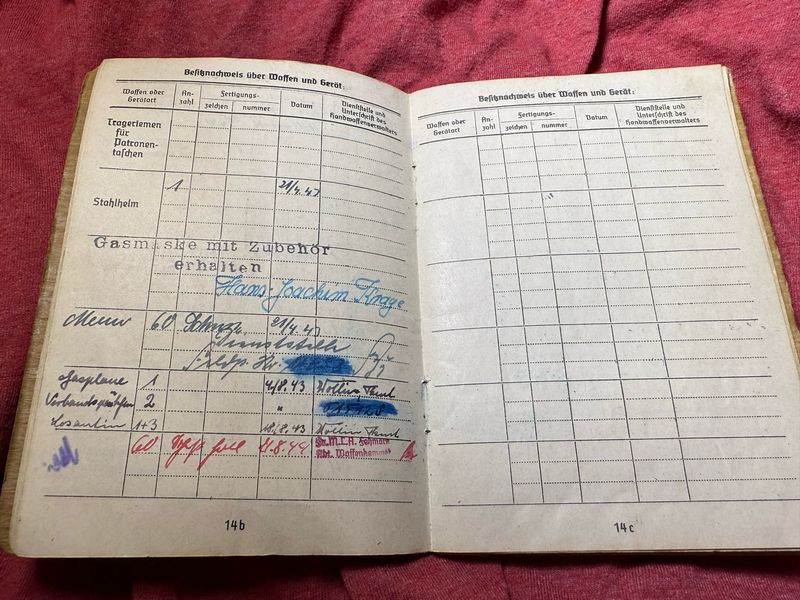 Besitznachweis über Waffen und Gerät:
Waffen oder Gerätart An-zahl Fertigungs-zeichen nummer Datum Dienststelle und Unterschrift des Handwaffenverwalters
Trageriemen
für
Patronen-
taschen
Stahlhelm 1 21/4.43
Gasmaske mit Zubehör
erhalten
Hans-Joachim Krage
60 21/4.43
Dienststelle
Feldp. Nr.
Gasplane 1 4/8.43
2 "
Losantin 1+3 18.8.43
60 .8.44
Abt. Waffenkammer
14b
Besitznachweis über Waffen und Gerät:
Waffen oder Gerätart An-zahl Fertigungs-zeichen nummer Datum Dienststelle und Unterschrift des Handwaffenverwalters
14c